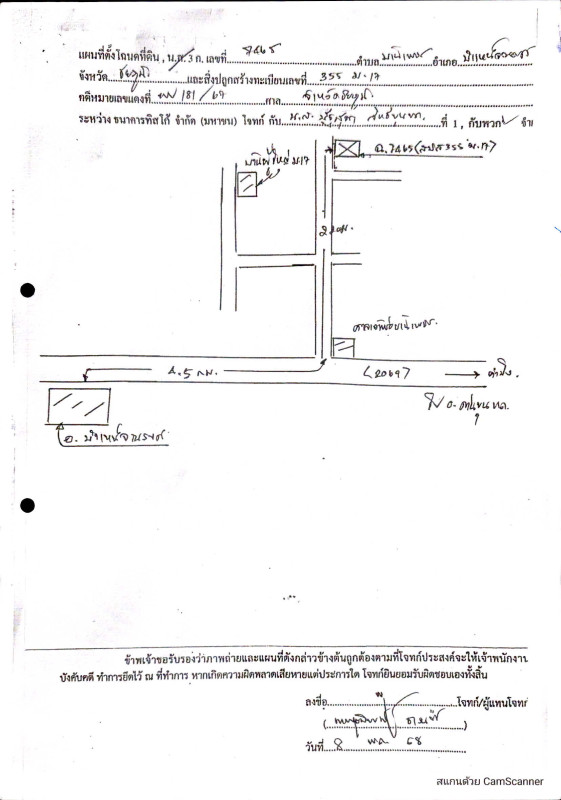 แผนที่ตั้งโฉนดที่ดิน , น.ส.3 ก. เลขที่ 7465 ตำบล บ้านเพชร อำเภอ บำเหน็จณรงค์
จังหวัด ชัยภูมิ และสิ่งปลูกสร้างทะเบียนเลขที่ 355 ม.17
คดีหมายเลขแดงที่ /81/67 ศาล จังหวัดชัยภูมิ
ระหว่าง ธนาคารทิสโก้ จำกัด (มหาชน) โจทก์ กับ น.ส. ที่ 1 , กับพวก
ฉ.7465 (สปส 355 ม.17)
ม.17
2 กม.
4.5 กม.
(2069)
อ. บำเหน็จณรงค์
ข้าพเจ้าขอรับรองว่าภาพถ่ายและแผนที่ดังกล่าวข้างต้นถูกต้องตามที่โจทก์ประสงค์จะให้เจ้าพนักงาน
บังคับคดี ทำการยึดไว้ ณ ที่ทำการ หากเกิดความผิดพลาดเสียหายแต่ประการใด โจทก์ยินยอมรับผิดชอบเองทั้งสิ้น
ลงชื่อ โจทก์/ผู้แทนโจทก์
วันที่ 8 พค 68
สแกนด้วย CamScanner